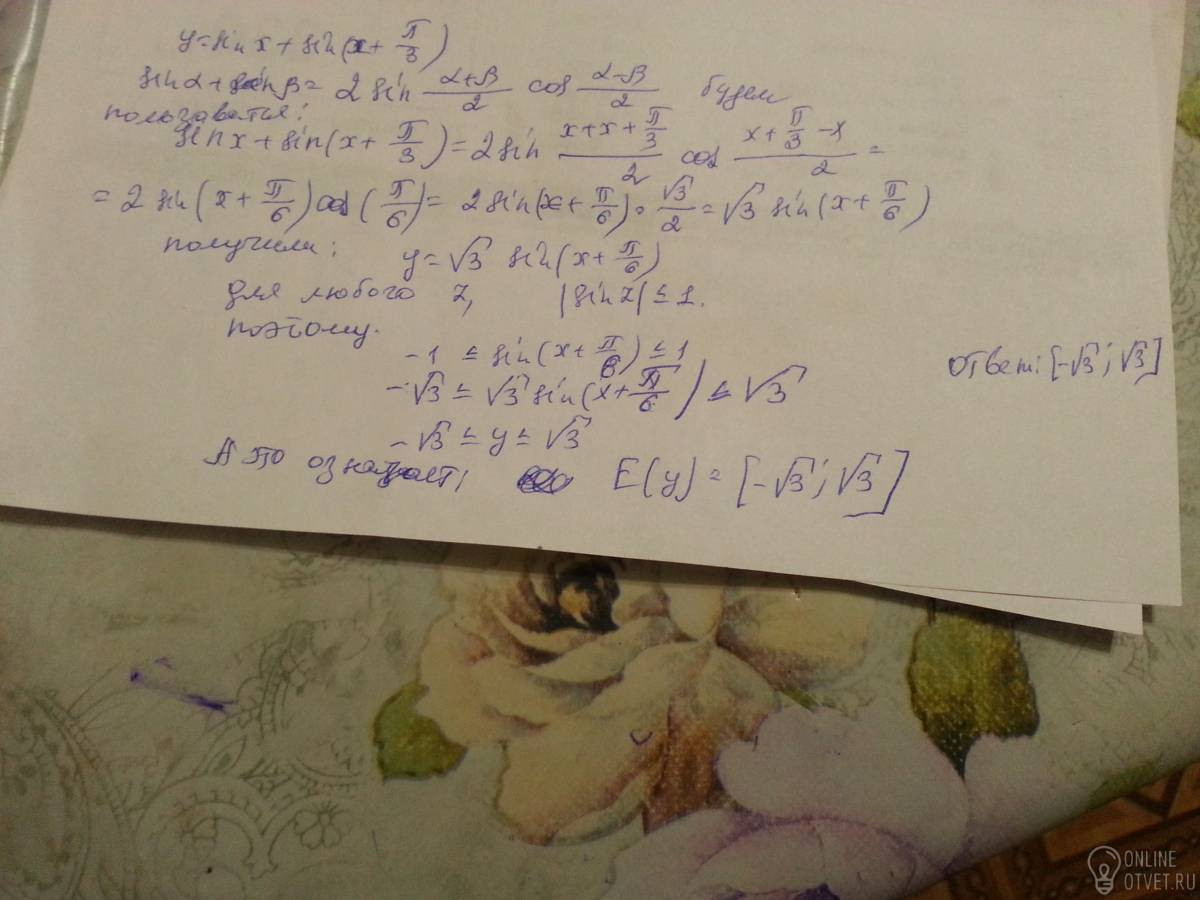 y=sin x + sin(x + π/3)
sinα + sinβ = 2 sin (α+β)/2 cos (α-β)/2 будем
пользоваться:
sin x + sin(x + π/3) = 2 sin (x+x+π/3)/2 cos (x+π/3-x)/2 =
= 2 sin(x + π/6) cos(π/6) = 2 sin(x + π/6) · √3/2 = √3 sin(x + π/6)
получили: y = √3 sin(x + π/6)
для любого z, |sin z| ≤ 1.
поэтому.
-1 ≤ sin(x + π/6) ≤ 1
-√3 ≤ √3 sin(x + π/6) ≤ √3
ответ: [-√3; √3]
-√3 ≤ y ≤ √3
А это означает; E(y) = [-√3; √3]
ONLINE
OTVET.RU